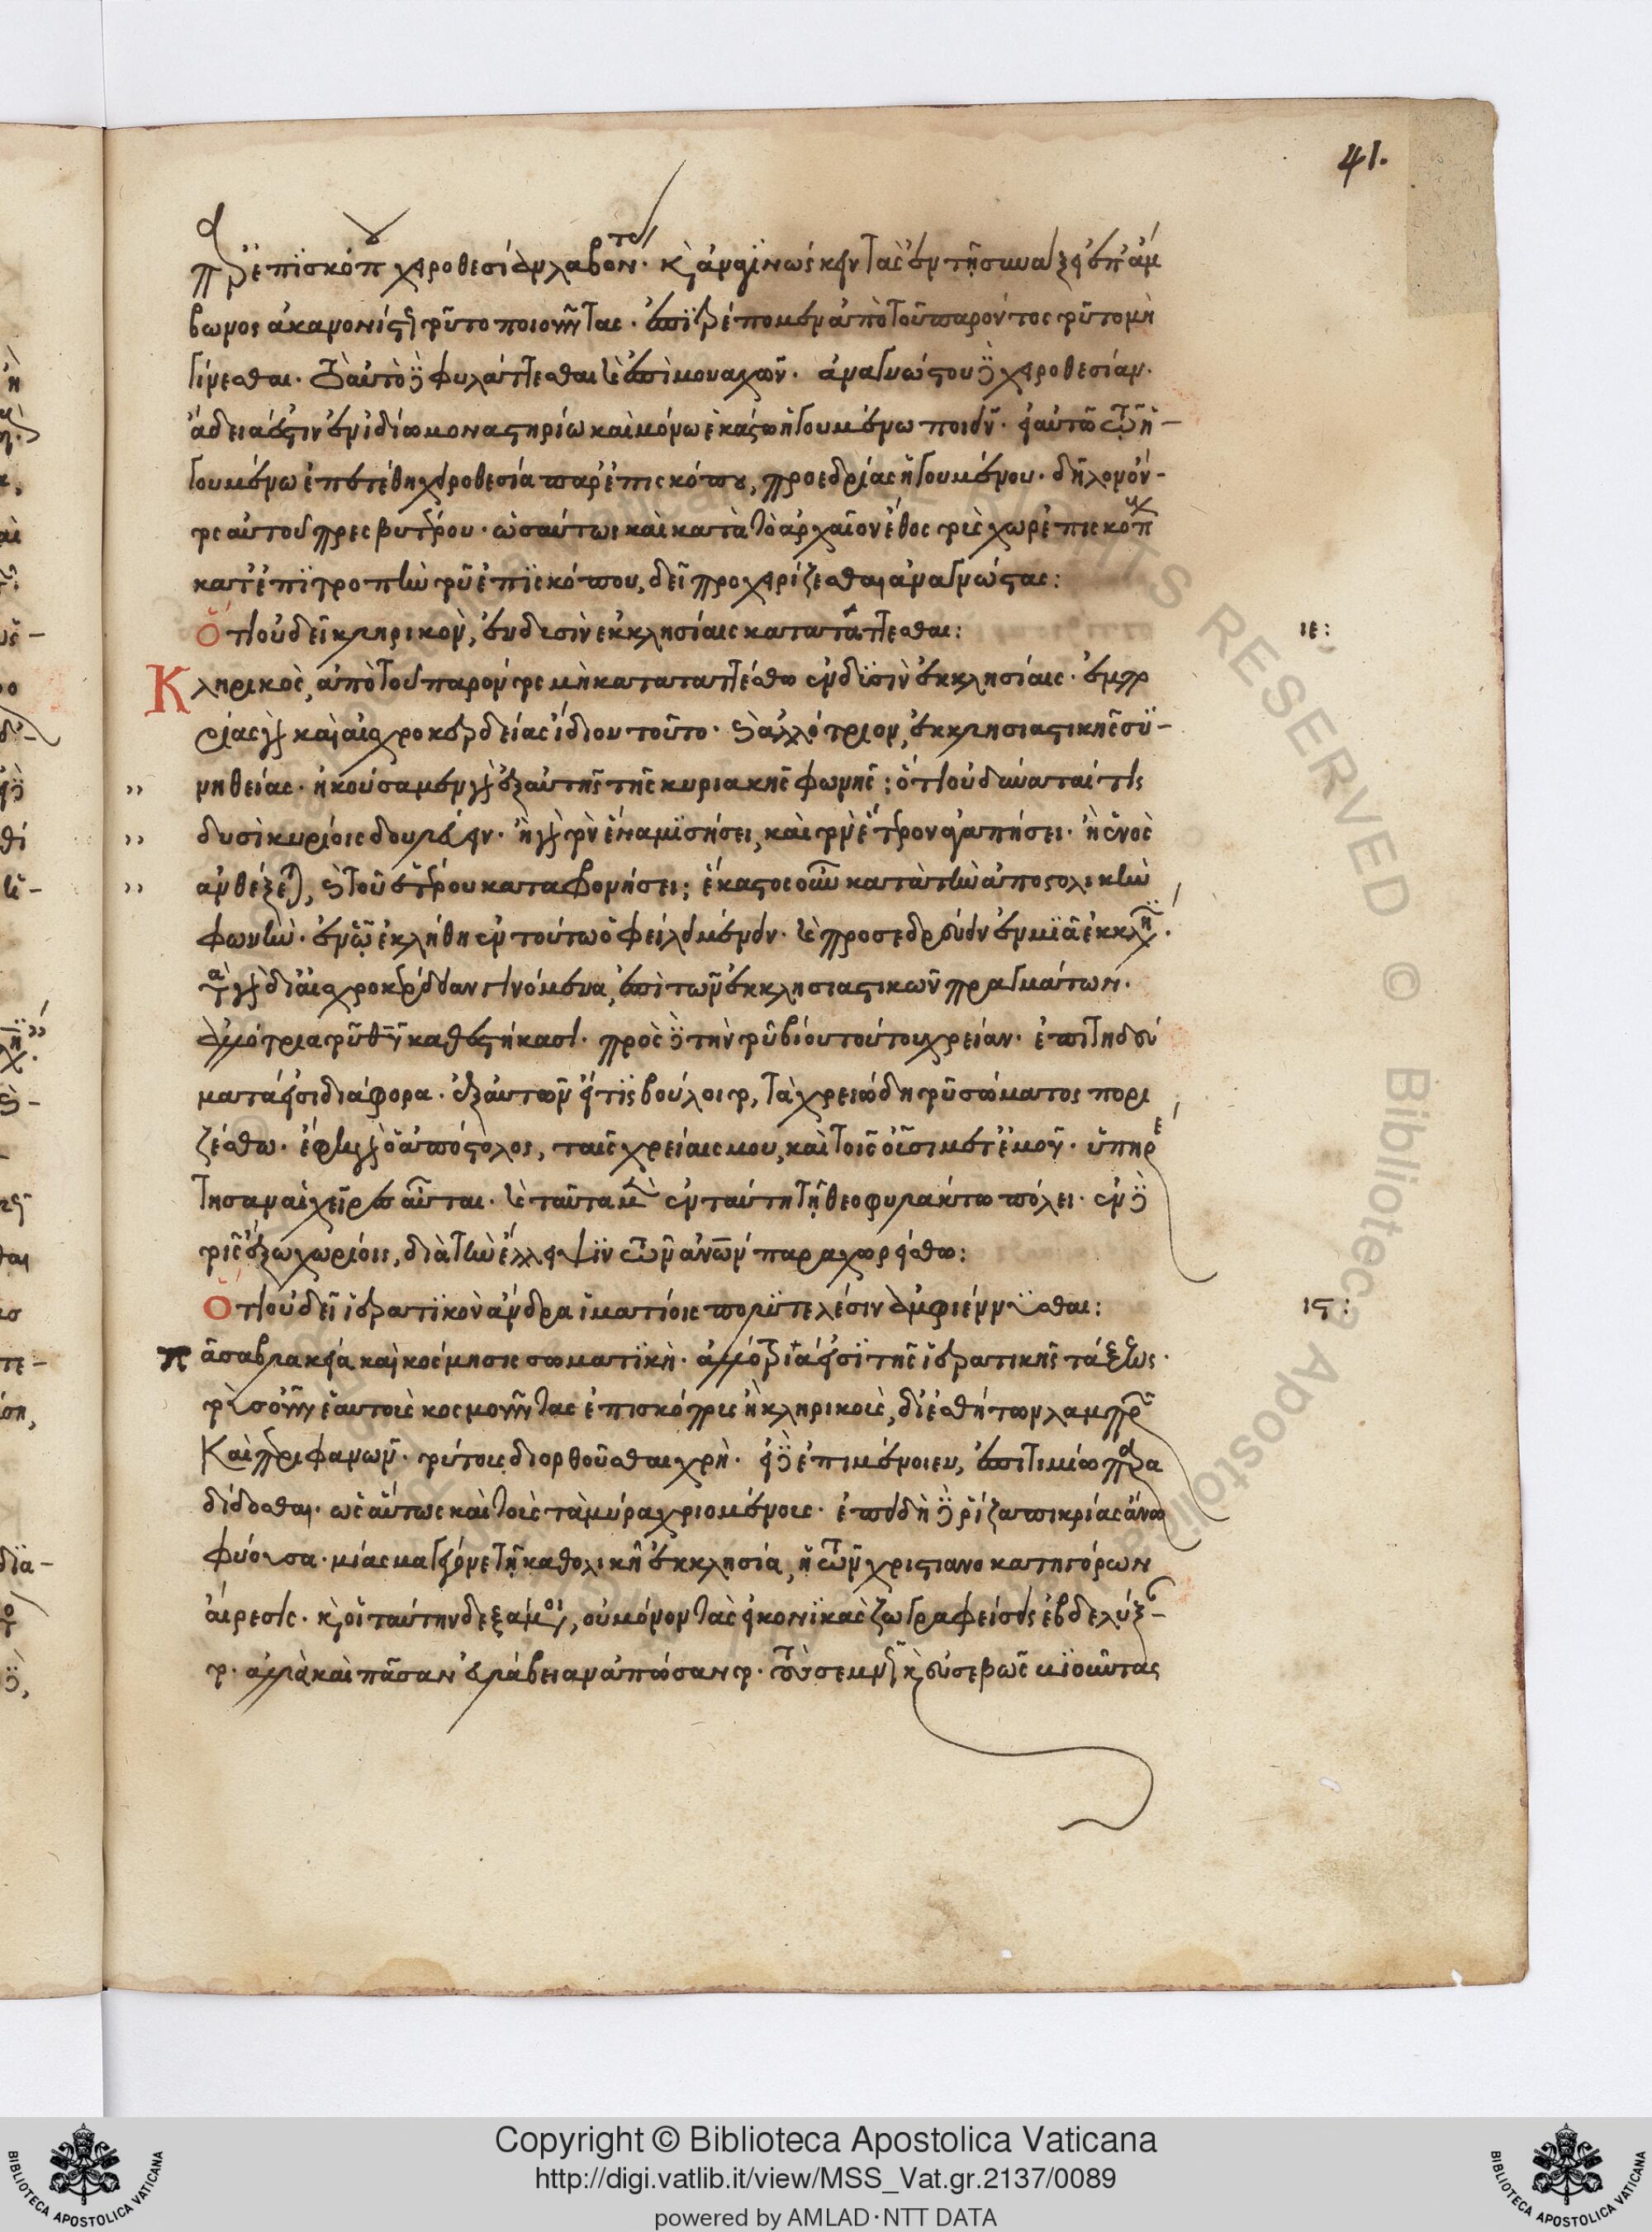 41.
παρὰ ἐπισκόπου χειροθεσίαν λαβόντες· καὶ ἀναγινώσκειν τὰς ἐν τῇ συνάξει ἐπ' ἄμ
βωνος ἀκανονίστως τοῦτο ποιοῦντας· ἐπιτρέπομεν ἀπὸ τοῦ παρόντος τοῦτο μὴ
γίνεσθαι· τὸ αὐτὸ δὲ φυλάττεσθαι καὶ ἐπὶ μοναχῶν· ἀναγνώστου δὲ χειροθεσίαν·
ἄδεια ἐστιν ἐν ἰδίω μοναστηρίω καὶ μόνω ἑκάστω ἡγουμένω ποιεῖν· εἰ αὐτῶ τῶ ἡ-
γουμένω ἐπετέθη χειροθεσία παρ' ἐπισκόπου, προεδρίας ἡγουμένου· δηλονὅν-
τος αὐτοῦ πρεσβυτέρου· ὡσαύτως καὶ κατὰ τὸ ἀρχαῖον ἔθος τοὺς χωρεπισκόπους
κατ' ἐπιτροπὴν τοῦ ἐπισκόπου, δεῖ προχειρίζεσθαι ἀναγνώστας:
Ὅτι οὐ δεῖ κληρικὸν, ἐν δυσὶν ἐκκλησίαις κατατάττεσθαι: ιε:
Κληρικὸς, ἀπὸ τοῦ παρόντος μὴ κατατατέσθω ἐν δυσὶν ἐκκλησίαις· ἐμπο
ρίας γὰρ καὶ αἰσχροκερδείας ἴδιον τοῦτο· καὶ ἀλλότριον ἐκκλησιαστικῆς συ-
νηθείας· ἠκούσαμεν γὰρ ἐξ αὐτῆς τῆς κυριακῆς φωνῆς; ὅτι οὐ δύναταί τις
δυσὶ κυρίοις δουλεύειν· ἢ γὰρ τὸν ἕνα μισήσει, καὶ τὸν ἕτερον ἀγαπήσει· ἢ ἑνὸς
ἀνθέξεται, καὶ τοῦ ἑτέρου καταφρονήσει; ἕκαστος οὖν κατὰ τὴν ἀποστολικὴν
φωνὴν· ἐν ᾧ ἐκλήθη ἐν τούτω ὀφείλει μένειν· καὶ προσεδρεύειν ἐν μιᾷ ἐκκλησίᾳ·
τὰ γὰρ δι' αἰσχροκέρδειαν γινόμενα, ἐπὶ τῶν ἐκκλησιαστικῶν πραγμάτων·
ἀλλότρια τοῦ θυ καθεστήκασι· πρὸς δὲ τὴν τοῦ βίου τούτου χρείαν· ἐπιτηδεύ
ματά εἰσι διάφορα· ἐξ αὐτῶν εἴ τις βούλοιτο, τὰ χρειώδη τοῦ σώματος πορι
ζέσθω· ἔφη γὰρ ὁ ἀπόστολος, ταῖς χρείαις μου, καὶ τοῖς οὖσι μετ' ἐμοῦ· ὑπηρέ
τησαν αἱ χεῖρες αὗται· καὶ ταῦτα μὲν ἐν ταύτη τῇ θεοφυλάκτω πόλει· ἐν δὲ
τοῖς ἔξω χωρίοις, διὰ τὴν ἔλλειψιν τῶν ἀνων παραχωρείσθω:
Ὅτι οὐ δεῖ ἱερατικὸν ἄνδρα ἱματίοις πολυτελέσιν ἀμφιέννυσθαι: ις:
Πᾶσα βλακεία καὶ κόσμησις σωματικὴ· ἀλλότρια εἰσὶ τῆς ἱερατικῆς τάξεως·
τοὺς οὖν ἑαυτοὺς κοσμοῦντας ἐπισκόπους ἢ κληρικοὺς, δι' ἐσθήτων λαμπρῶν
καὶ περιφανῶν· τούτους διορθοῦσθαι χρὴ· εἰ δὲ ἐπιμένοιεν, ἐπιτιμίω παρα
δίδοσθαι· ὡσαύτως καὶ τοὺς τὰ μύρα χριομένους· ἐπειδὴ δὲ ῥίζα πικρίας ἄνω
φύουσα· μίασμα γέγονε τῇ καθολικῇ ἐκκλησία, ἡ τῶν χριστιανοκατηγόρων
αἵρεσις· καὶ οἱ ταύτην δεξάμενοι, οὐ μόνον τὰς εἰκονικὰς ζωγραφείσεις ἐβδελύξαν-
το· ἀλλὰ καὶ πᾶσαν εὐλάβειαν ἀπώσαντο· τοὺς σεμνῶς καὶ εὐσεβῶς βιοῦντας
Copyright © Biblioteca Apostolica Vaticana
http://digi.vatlib.it/view/MSS_Vat.gr.2137/0089
powered by AMLAD·NTT DATA